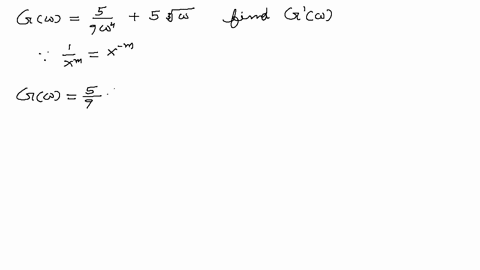 G(ω) = 5/9ω⁴ + 5 ∜ω find G'(ω)
∵ 1/xᵐ = x⁻ᵐ
G(ω) = 5/9 ·